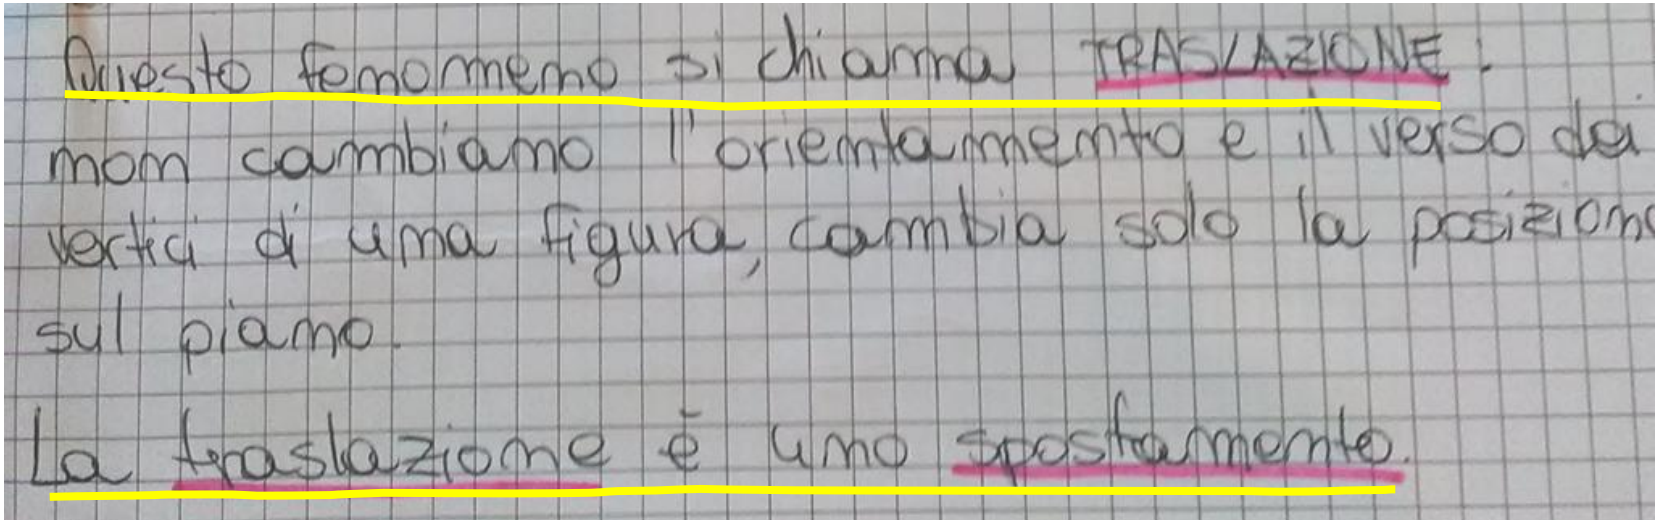 Questo fenomeno si chiama TRASLAZIONE:
non cambiamo l'orientamento e il verso dei
vertici di una figura, cambia solo la posizione
sul piano.
La traslazione è uno spostamento.